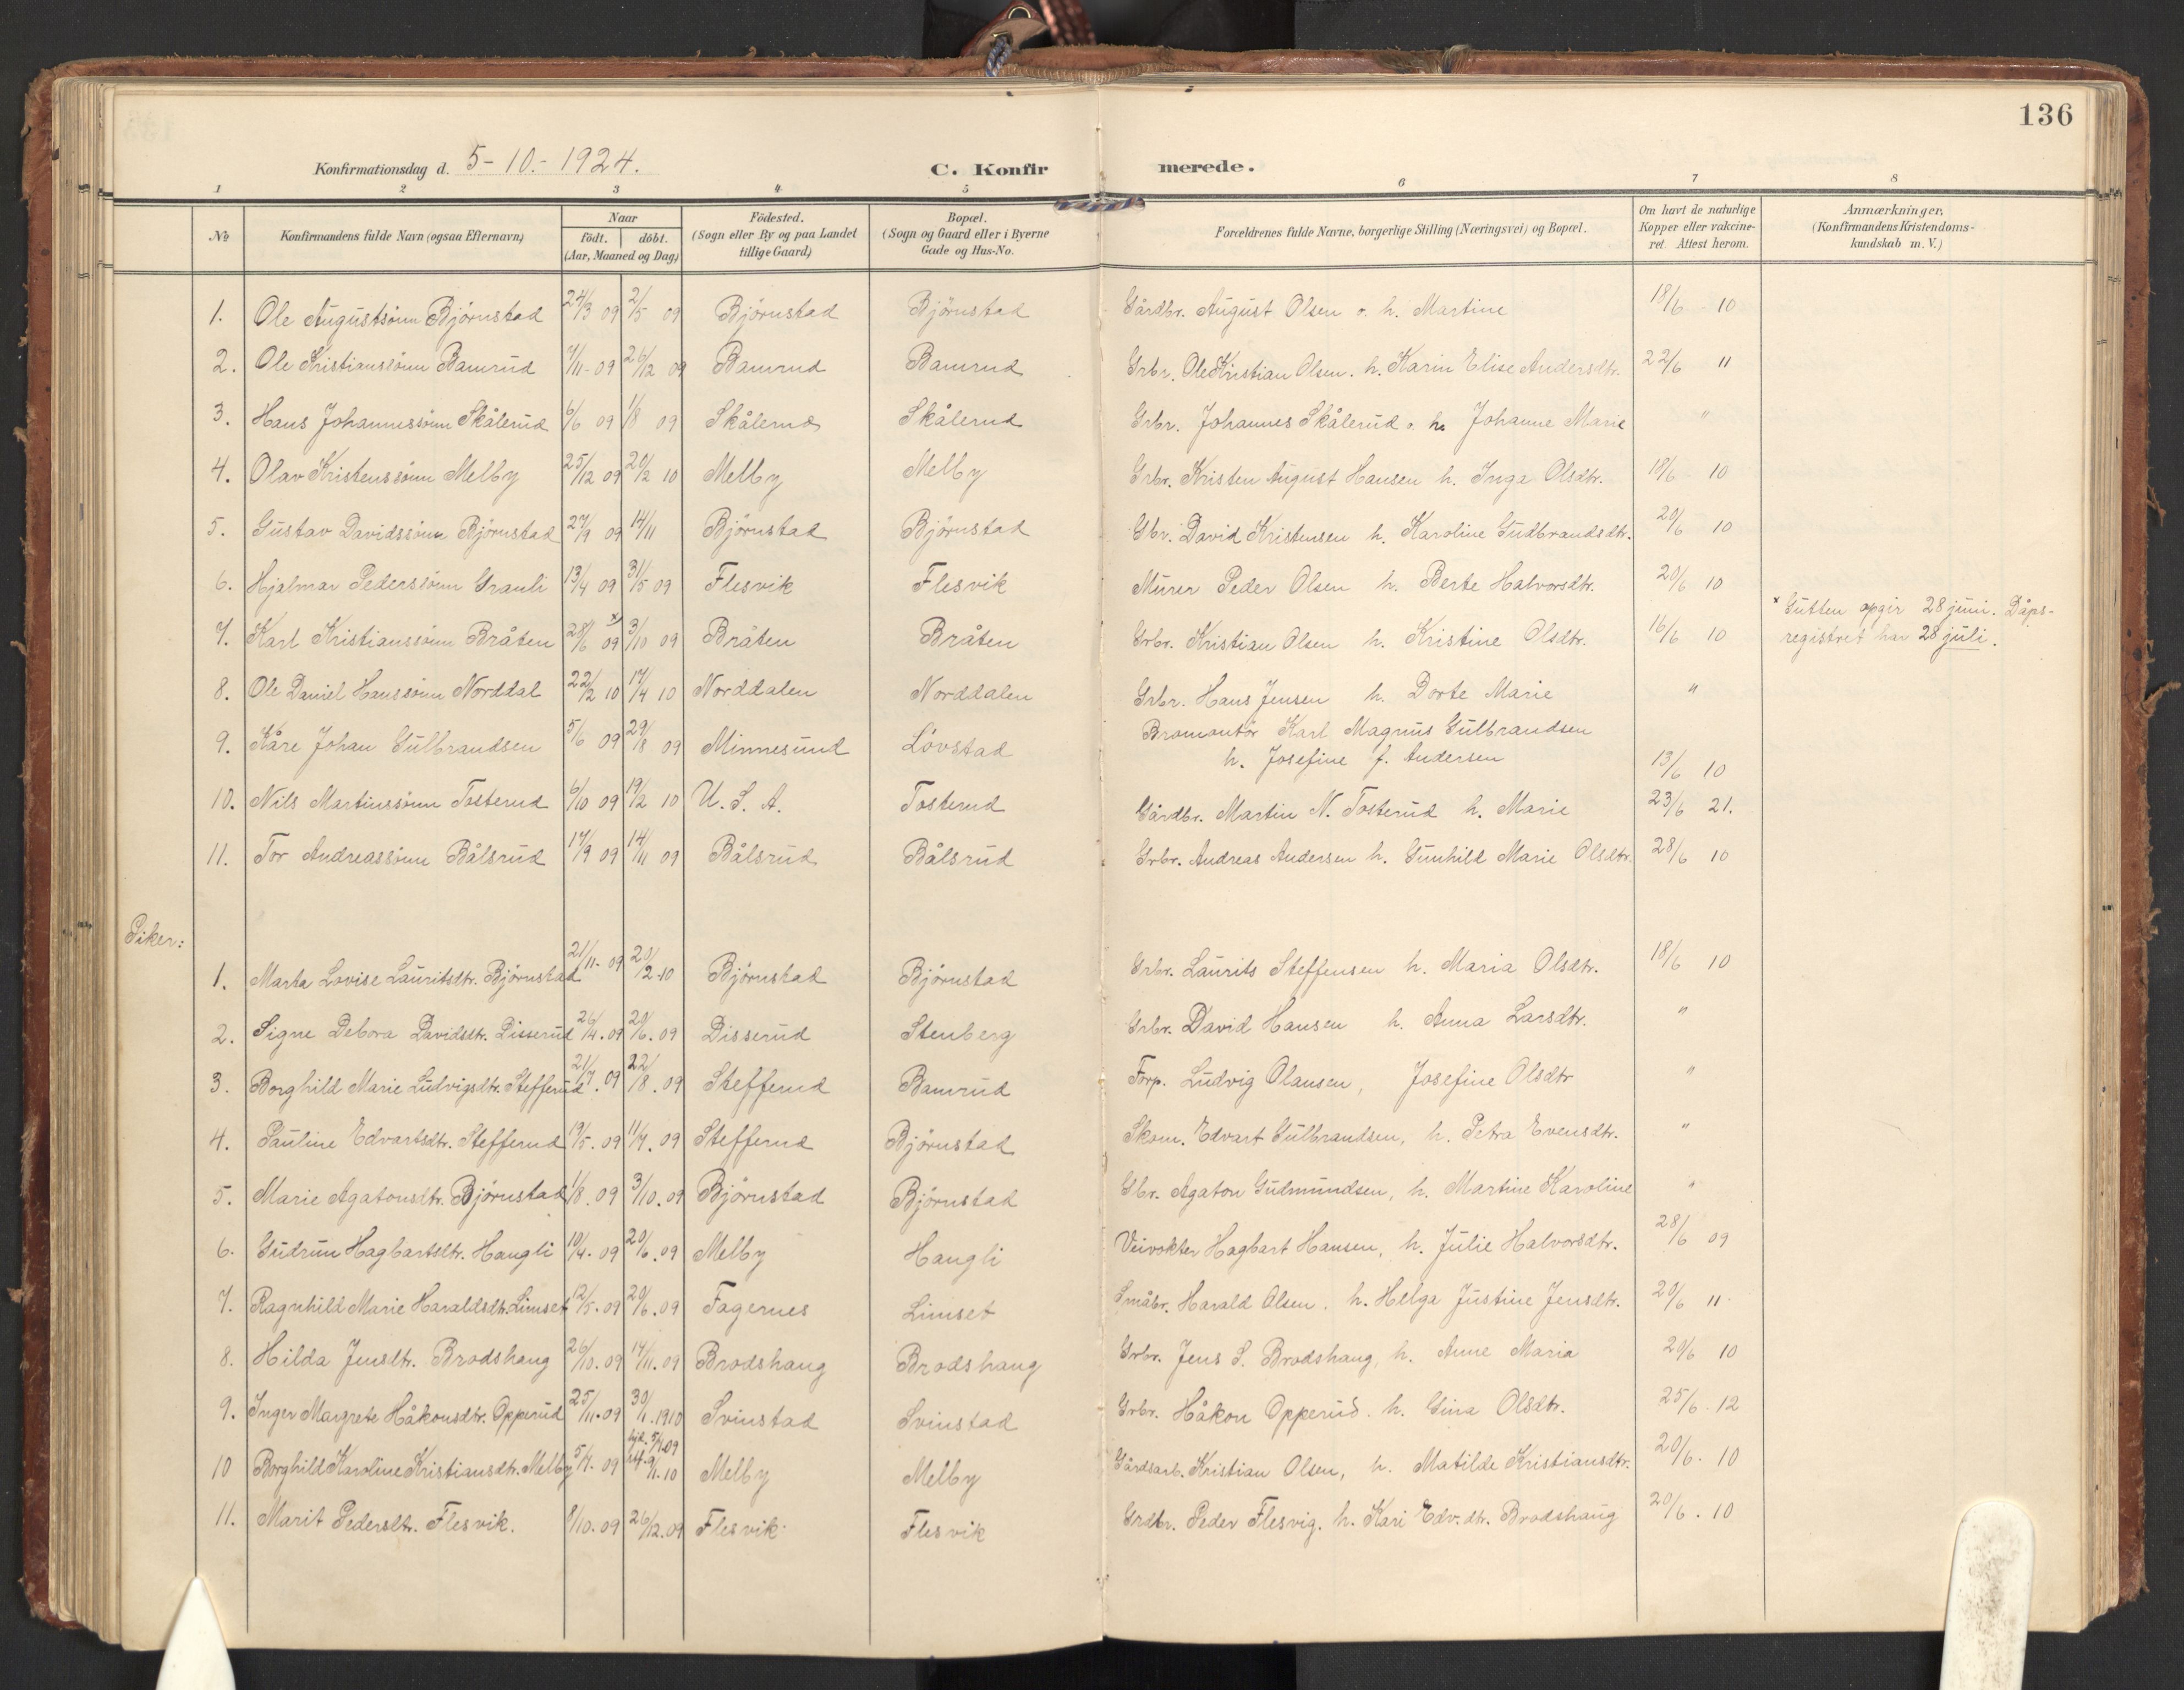 136
Konfirmationsdag d. 5-10.-1924.
C. Konfirmerede.
1 2 3 4 5 6 7 8
No
Konfirmandens fulde Navn (ogsaa Efternavn)
Naar
födt. | döbt.
(Aar, Maaned og Dag)
Födested.
(Sogn eller By og paa Landet
tillige Gaard)
Bopæl.
(Sogn og Gaard eller i Byerne
Gade og Hus-No.
Forældrenes fulde Navne, borgerlige Stilling (Næringsvei) og Bopæl.
Om havt de naturlige
Kopper eller vakcine-
ret. Attest herom.
Anmærkninger.
(Konfirmandens Kristendoms-
kundskab m. V.)
1. Ole Augustsönn Björnstad 24/3 09 2/5 09 Björnstad Björnstad Gårdbr. August Olsen o. h. Martine 18/6 10
2. Ole Kristianssönn Bamrud 7/11-09 26/12 09 Bamrud Bamrud Grbr. Ole Kristian Olsen. h. Karin Elise Andersdtr. 22/6 11
3. Hans Johannessönn Skålerud 6/6 09 1/8 09 Skålerud Skålerud Grbr. Johannes Skålerud o. h. Johanne Marie "
4. Olav Kristenssönn Melby 25/12 09 20/2 10 Melby Melby Grbr. Kristen August Hansen h. Inga Olsdtr. 18/6 10
5. Gustav Davidssönn Björnstad 27/9 09 14/11 Björnstad Björnstad Gbr. David Kristensen h. Karoline Gudbrandsdtr. 20/6 10
6. Hjalmar Pederssönn Granli 13/4 09 31/5 09 Flesvik Flesvik Murer Peder Olsen h. Berte Halvorsdtr. 20/6 10
7. Karl Kristianssönn Bråten 28/6 09 x 3/10 09 Bråten Bråten Grbr. Kristian Olsen h. Kristine Olsdtr. 16/6 10 x Gutten opgir 28 juni. Dåps-
registret har 28 juli.
8. Ole Daniel Hanssönn Norddal 22/2 10 17/4 10 Norddalen Norddalen Grbr. Hans Jensen h. Dorte Marie "
9. Kåre Johan Gulbrandsen 5/6 09 29/8 09 Minnesund Lövstad Bromontör Karl Magnus Gulbrandsen
h. Josefine f. Andersen 13/6 10
10. Nils Martinssönn Tosterud 6/10 09 19/2 10 U.S.A. Tosterud Gårdbr. Martin N. Tosterud h. Marie 23/6 21.
11. Tor Andreassönn Bålsrud 17/9 09 14/11 09 Bålsrud Bålsrud Grbr. Andreas Andersen h. Gunhild Marie Olsdtr. 28/6 10
Piker:
1. Marta Lovise Lauritsdtr. Björnstad 21/11-09 20/2-10 Björnstad Björnstad Grbr. Laurits Steffensen h. Maria Olsdtr. 18/6 10
2. Signe Debora Davidsdtr. Disserud 26/4.09 20/6.09 Disserud Stenberg Grbr. David Hansen h. Anna Larsdtr. "
3. Borghild Marie Ludvigsdtr. Stefferud 21/7.09 22/8.09 Stefferud Bamrud Forp. Ludvig Olausen, Josefine Olsdtr "
4. Pauline Edvartsdtr. Stefferud 19/5.09 11/7.09 Stefferud Björnstad Skom. Edvart Gulbrandsen, h. Petra Evensdtr. "
5. Marie Agatonsdtr. Björnstad 1/8.09 3/10.09 Björnstad Björnstad Gbr. Agaton Gudmundsen, h. Martine Karoline "
6. Gudrun Hagbartsdtr. Haugli 10/4.09 20/6.09 Melby Haugli Veivokter Hagbart Hansen, h. Julie Halvorsdtr. 28/6 09
7. Ragnhild Marie Haraldsdtr. Limset 12/5.09 20/6.09 Fagernes Limset Småbr. Harald Olsen. h. Helga Justine Jensdtr. 20/6 11
8. Hilda Jensdtr. Brodshaug 26/10.09 14/11.09 Brodshaug Brodshaug Grbr. Jens S. Brodshaug, h. Anne Maria 20/6 10
9. Inger Margrete Håkonsdtr. Opperud 25/11.09 30/1.1910 Svinstad Svinstad Grbr. Håkon Opperud. h. Gina Olsdtr. 25/6.12
10 Borghild Karoline Kristiansdtr. Melby 5/7.09 hjd. 5/7.09
stf. 9/1.10 Melby Melby Gårdsarb. Kristian Olsen, h. Matilde Kristiansdtr. 20/6.10
11. Marit Pedersdtr. Flesvik. 8/10.09 26/12.09 Flesvik Flesvik Grdbr. Peder Flesvig. h. Kari Edv.dtr. Brodshaug 20/6.10